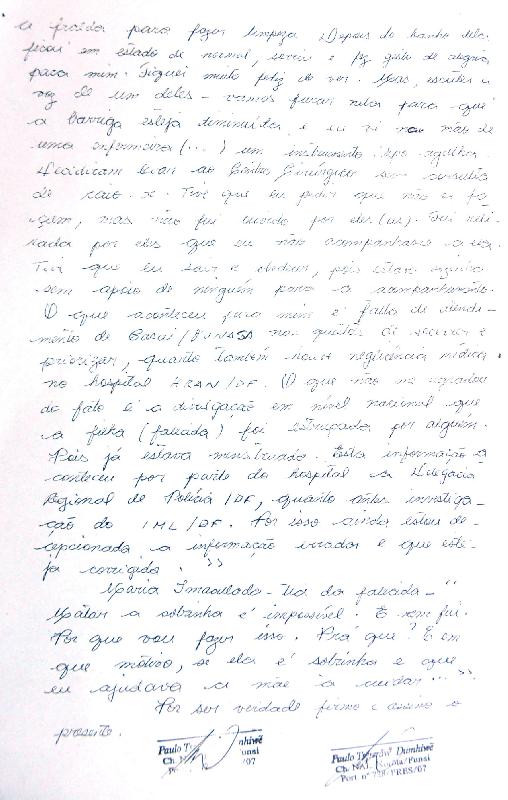 a fralda para fazer limpeza. Depois do banho dela
ficou em estado de normal, sorriu e fez gesto de alegria
para mim. Fiquei muito feliz de ver. Mas, escutei a
voz de um deles - vamos furar nela para que
a barriga esteja diminuída, e eu vi nas mão de
uma enfermeira (...) um instrumento tipo agulha.
Decidiram levar ao Centro Cirúrgico sem consulta
de raio-x. Tive que eu pedir que não a fa-
çam, mas não fui ouvido por eles (as). Fui reti-
rada por eles que eu não acompanhasse a ela.
Tive que eu sair e obedecer, pois estava sozinha
sem apoio de ninguém para a acompanhamento.
O que aconteceu para mim é falta de atendi-
mento de Casai/FUNASA nas questões de socorrer e
priorizar, quanto também houve negligência médica
no hospital HRAN/DF. O que não me agradou
do fato é a divulgação em nível nacional que
a filha (falecida) foi estuprada por alguém.
Pois já estava menstruada. Esta informação a-
conteceu por parte do hospital a Delegacia
Regional de Polícia/DF, quanto antes investiga-
ção do IML/DF. Por isso ainda estou de-
cepcionada a informação errada e que este-
ja corrigida. "
Maria Imaculada - Tia da falecida - "
Matar a sobrinha é impossível. E nem fui.
Por que vou fazer isso. Prá que? E em
que motivo, se ela é sobrinha e que
eu ajudava a mãe a cuidar... "
Por ser verdade firmo e assino o
presente.
Paulo Dumhiwê
Ch. NAL Funsi
/07
Paulo Dumhiwê
Ch. NAL /Funsi
Port. nº /PRES/07